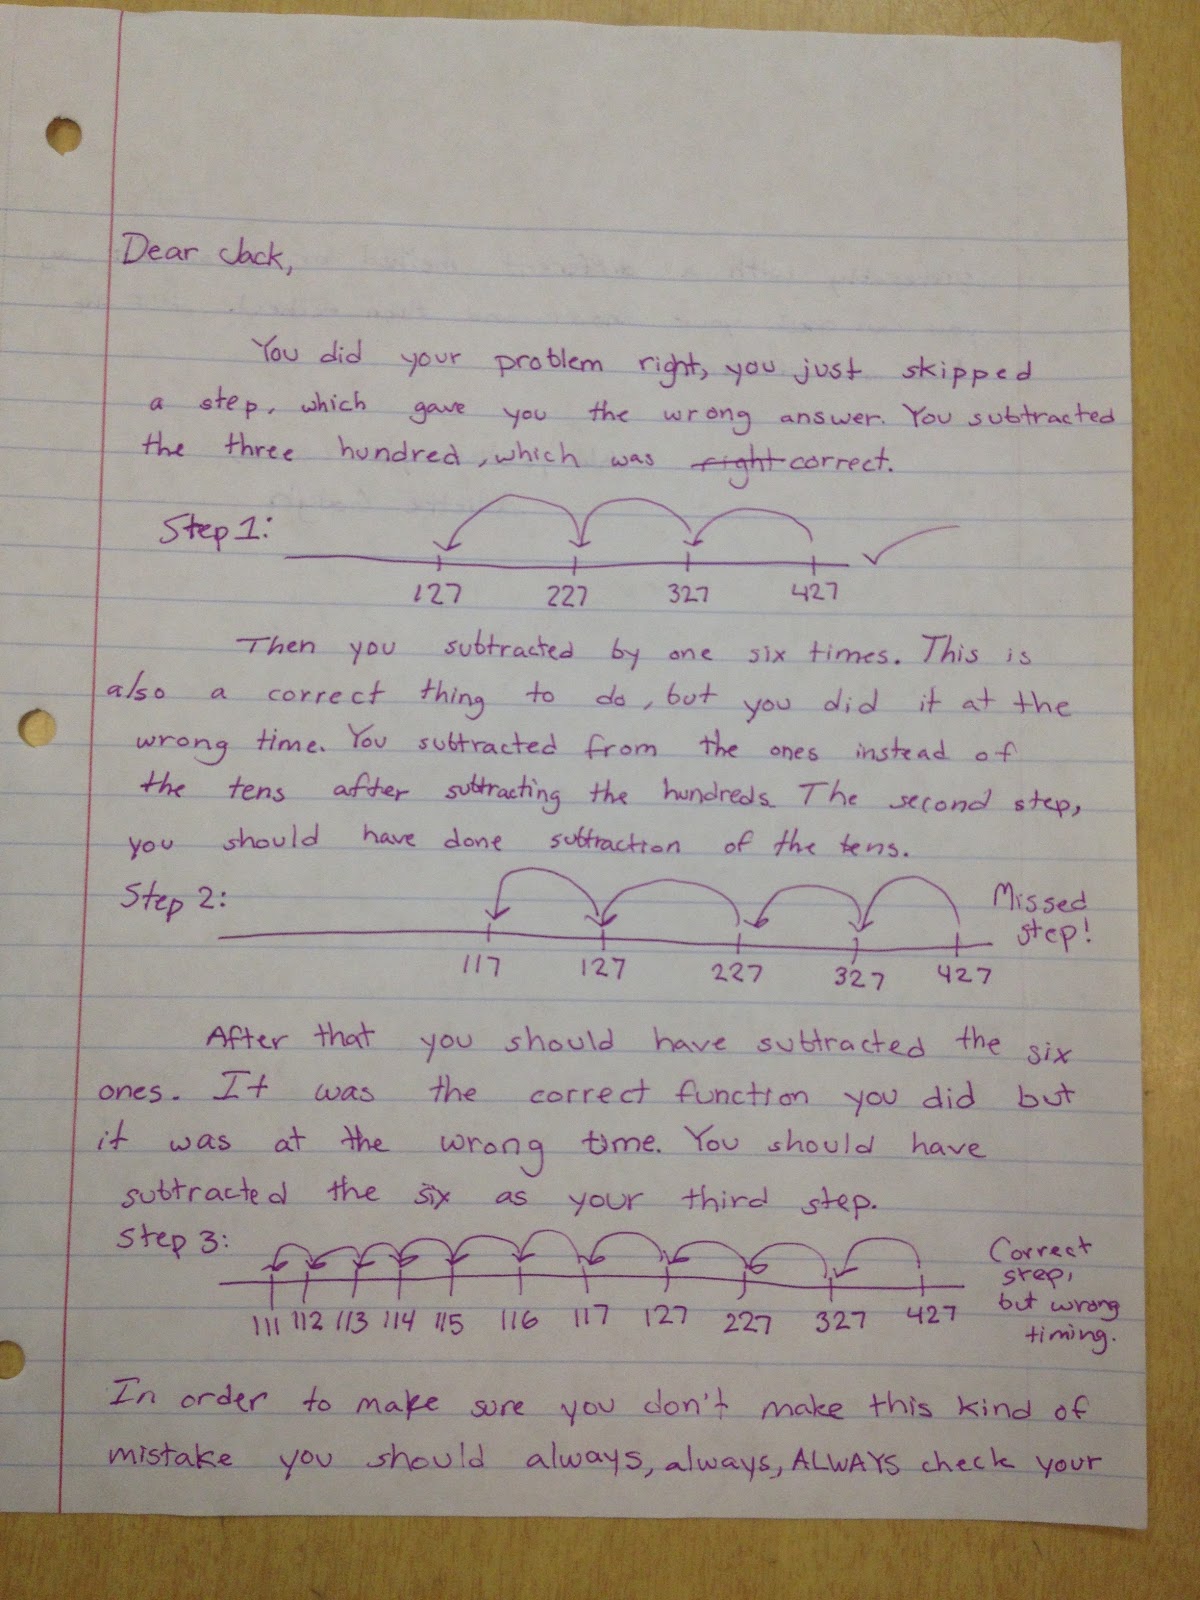 Dear Jack,
You did your problem right, you just skipped
a step, which gave you the wrong answer. You subtracted
the three hundred, which was right correct.
Step 1:
127 227 327 427
Then you subtracted by one six times. This is
also a correct thing to do, but you did it at the
wrong time. You subtracted from the ones instead of
the tens after subtracting the hundreds. The second step,
you should have done subtraction of the tens.
Step 2:
Missed
step!
117 127 227 327 427
After that you should have subtracted the six
ones. It was the correct function you did but
it was at the wrong time. You should have
subtracted the six as your third step.
Step 3:
Correct
step,
but wrong
timing.
111 112 113 114 115 116 117 127 227 327 427
In order to make sure you don't make this kind of
mistake you should always, always, ALWAYS check your